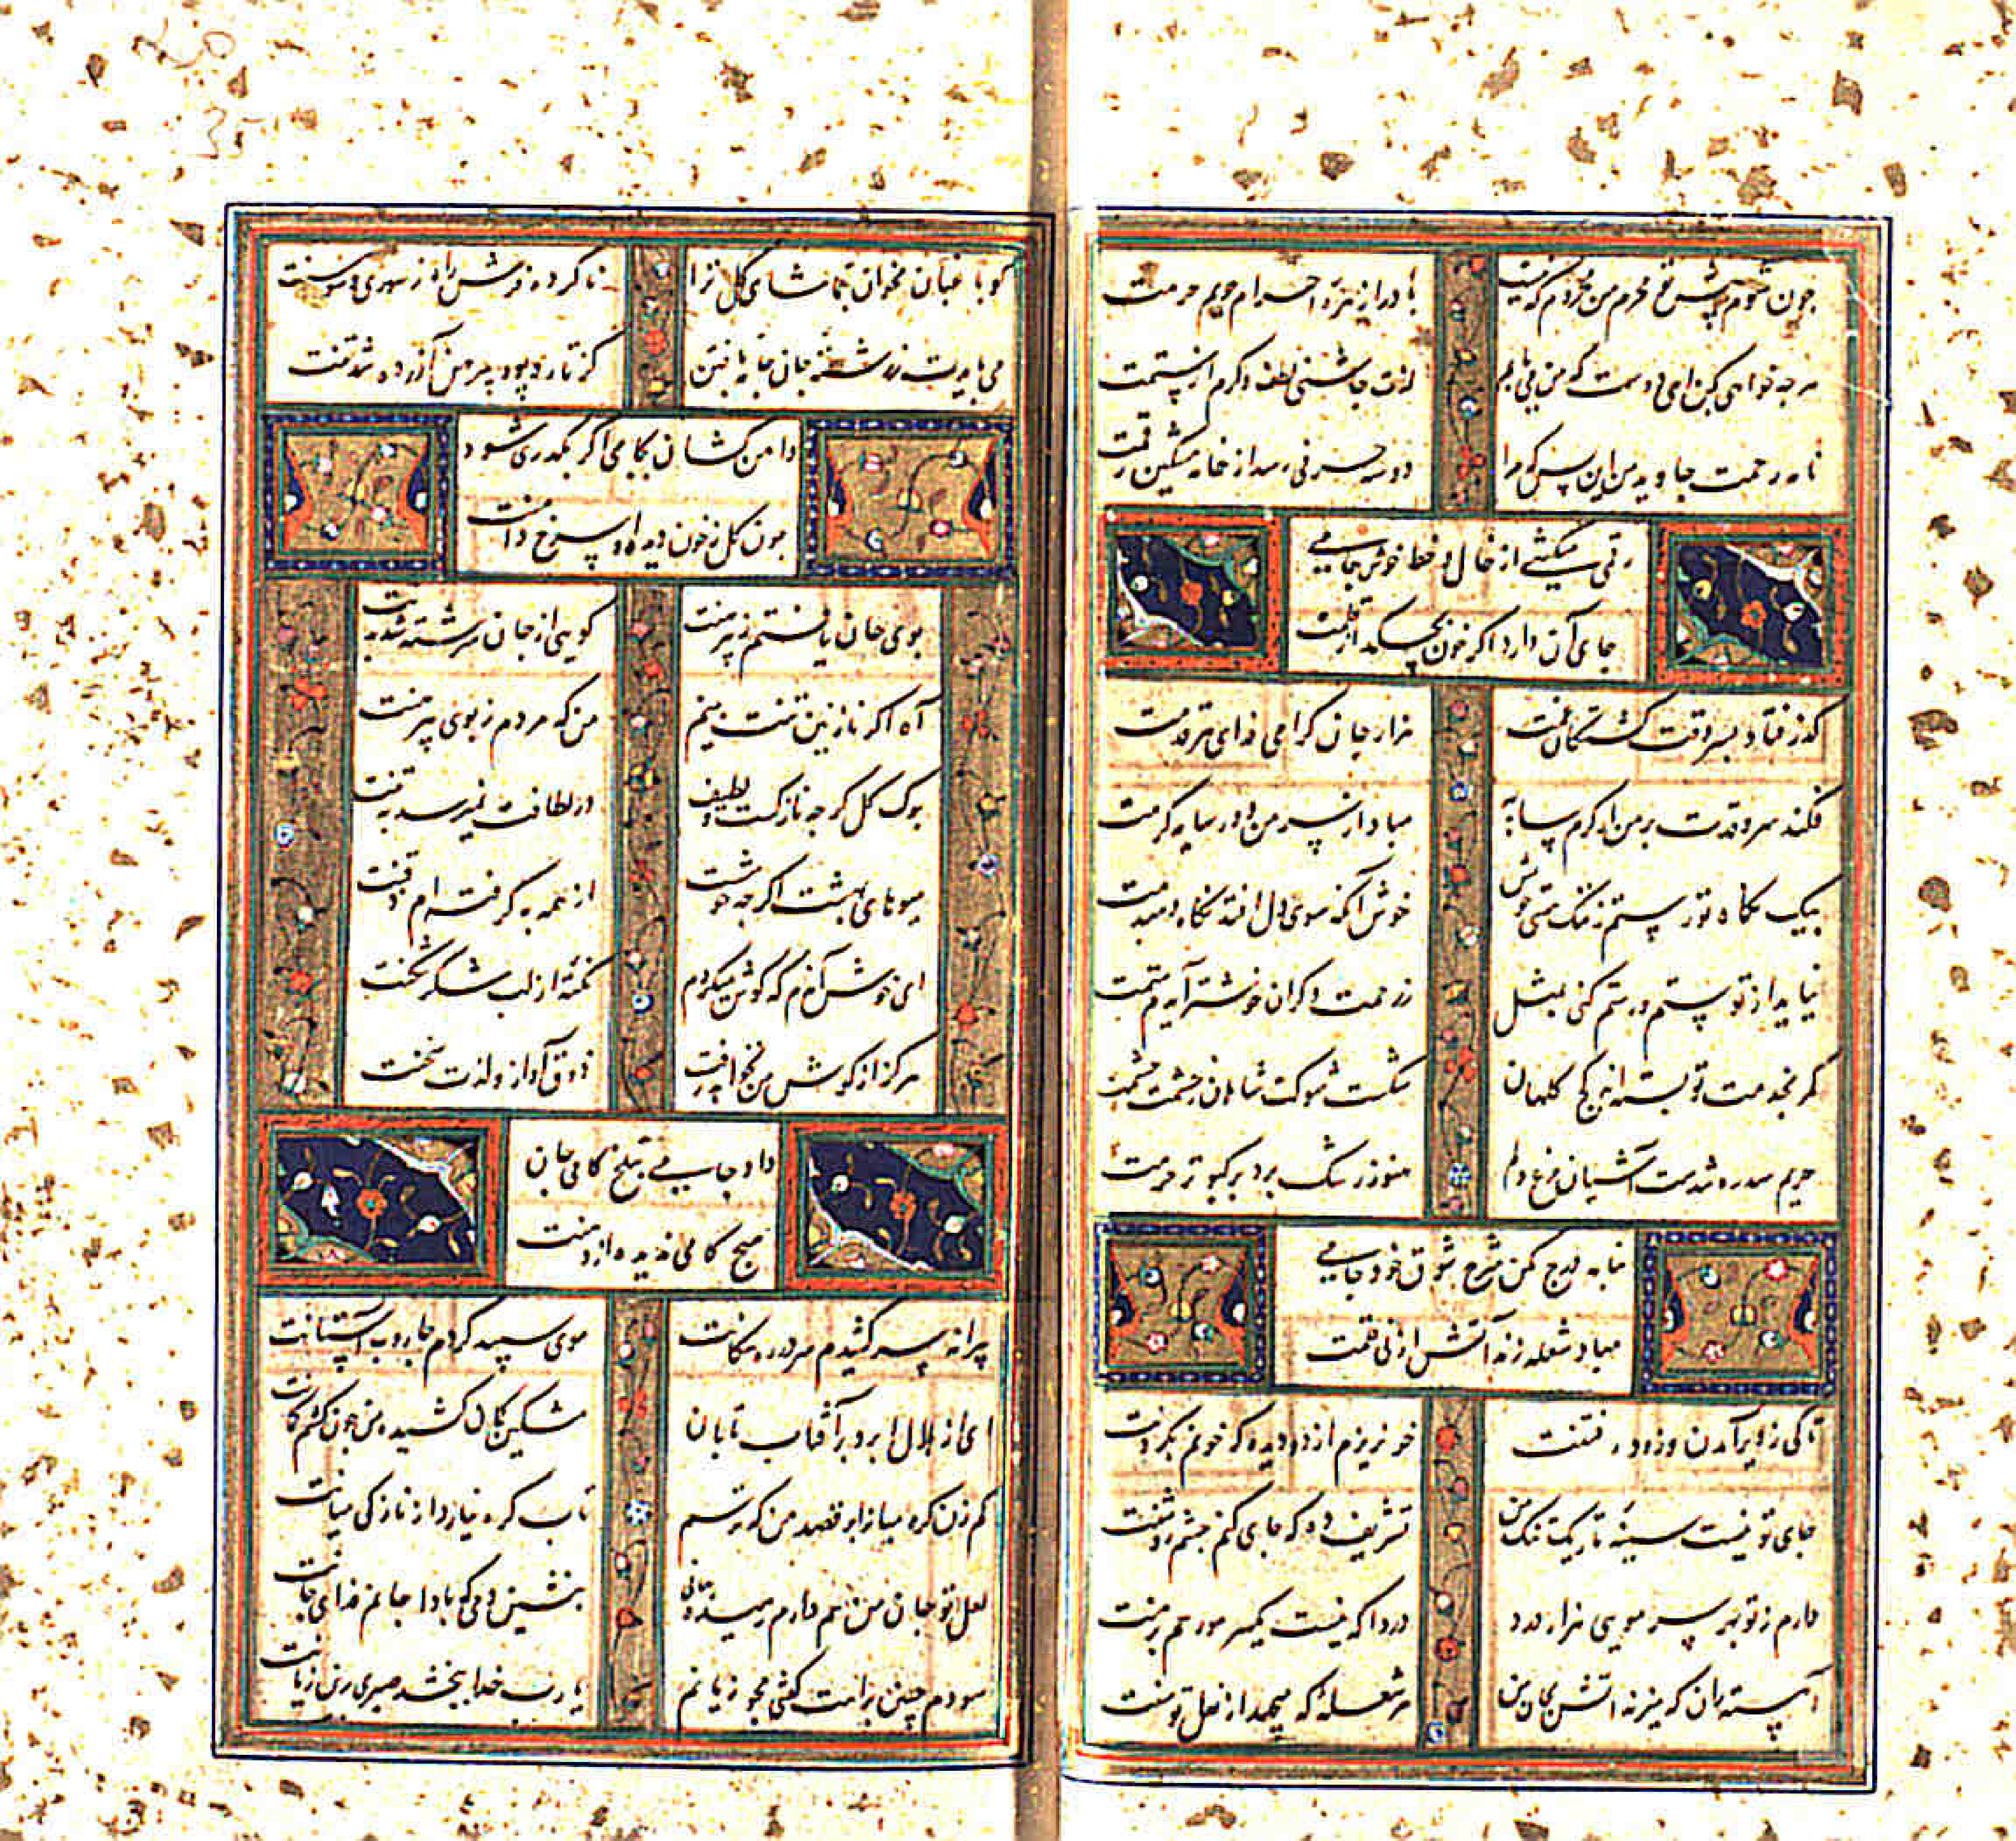 چون شوم پیش تو محرم من محروم که نیست
باد را زهره احرام حریم حرمت
هر چه خواهی بکن ای دوست که من می‌یابم
لذت چاشنی لطف و کرم از ستمت
نامه رحمت جاوید من این بس که مرا
دو سه حرفی رسد از خامه مشکین رقمت
رقمی می‌کشی از خال و خط خوش جامی
جای آن دارد اگر خون بچکد از قلمت
هزار جان گرامی فدای هر قدمت
فکند سرو قدت بر من از کرم سایه
مباد از سر من دور سایه کرمت
بیک نگاه تو رستم ز ننگ هستی خویش
خوش آنکه سوی دل افتد نگاه دمبدمت
نیاید از تو ستم ور ستم کنی بمثل
ز رحمت دگران خوشتر آیدم ستمت
کمر بخدمت تو بسته‌اند کج کلهان
شکست شوکت شاهان حشمت حشمت
حریم سدره شدست آشیان مرغ دلم
هنوز رشک برد بر کبوتر حرمت
بنامه درج مکن شرح شوق خود جامی
مباد شعله زند آتش از نی قلمت
تا کی ز دیر آمدن و زود رفتنت
خون ریزم از دو دیده که خونم بگردنت
جای تو نیست سینه تاریک تنگ من
تشریف ده که جای کنم چشم روشنت
دارم ز تو بهر سر مویی هزار درد
دردا که نیست یکسر مو رحم بر منت
آهسته ران که میزند آتش بجان من
هر شعله که میجهد از نعل توسنت
گو باغبان مخوان بتماشای گل ترا
ناکرده فرش راه ز نسرین و سوسنت
می‌بایدت ز رشته جان جامه بافتن
کز تار و پود پیرهن آزرده شد تنت
دامن کشان بجامی اگر بگذری شود
چون گل ز خون دیده او سرخ دامنت
بوی جان یافتم ز پیرهنت
گویی از جان سرشته شد بدنت
آه اگر نازنین تنت بینم
من که مردم ز بوی پیرهنت
برگ گل گر چه نازکست و لطیف
در لطافت نمیرسد به تنت
میوهای بهشت اگر چه خوشست
از همه به گرفته‌ام ذقنت
ای خوش آندم که گوش میکردم
نکته از لب شکر شکنت
هرگز از گوش من نخواهد رفت
ذوق آواز و لذت سخنت
داد جامی بتلخ کامی جان
هیچ کامی ندیده از دهنت
پیرانه سر کشیدم سر در ره سگانت
موی سپید کردم جاروب آستانت
ای از هلال ابرو بر آفتاب تابان
مشکین کمان کشیده من چون کشم کمانت
کم زن گره میان را بر قصد من که ترسم
تاب گره نیارد از نازکی میانت
بنشین دمی که بادا جانم فدای جانت
سودم چنین بر آتش کشی مجو زیانم
یا رب خدا ببخشد صبری